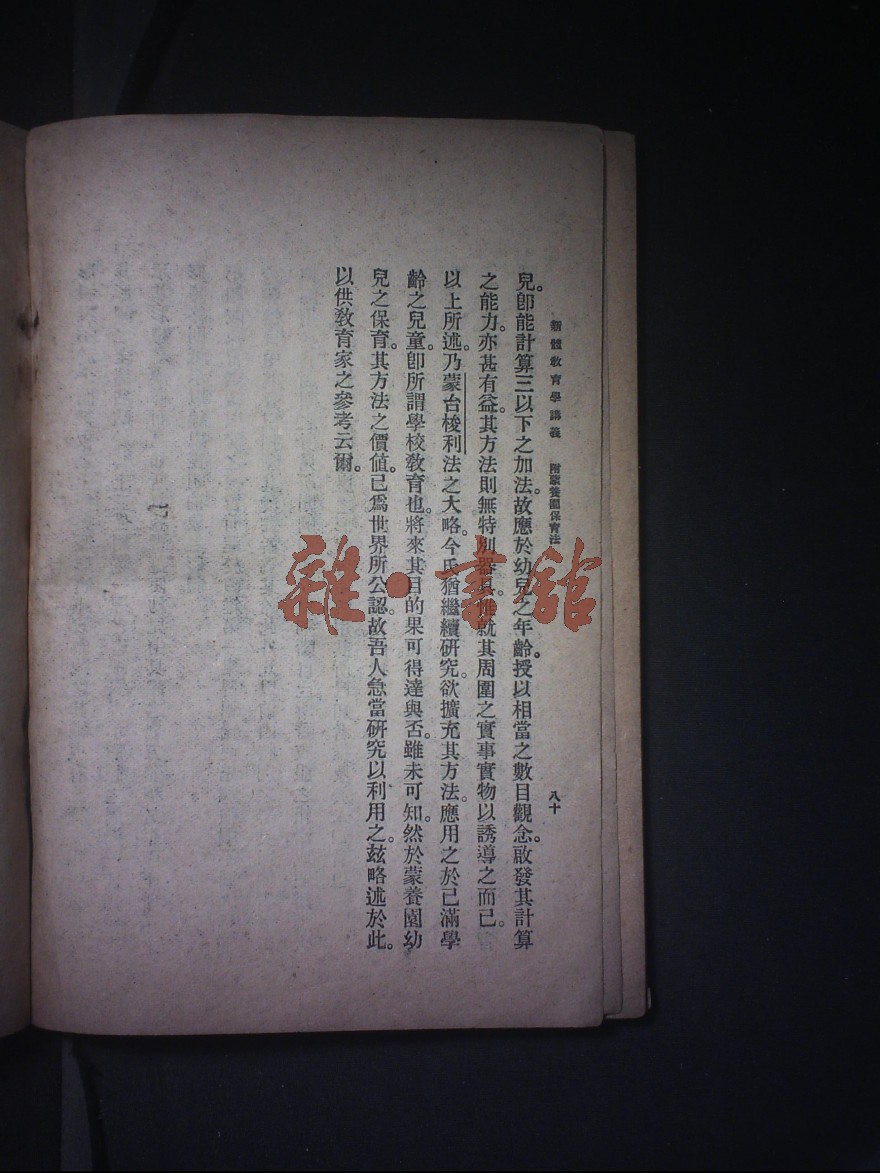 新體教育學講義 附蒙養園保育法 八十
兒。卽能計算三以下之加法。故應於幼兒之年齡。授以相當之數目觀念。啟發其計算
之能力。亦甚有益。其方法則無特別器具。惟就其周圍之實事實物以誘導之而已。
以上所述。乃蒙台梭利法之大略。今氏猶繼續硏究。欲擴充其方法。應用之於已滿學
齡之兒童。卽所謂學校敎育也。將來其目的果可得達與否。雖未可知。然於蒙養園幼
兒之保育。其方法之價値。已爲世界所公認。故吾人急當硏究以利用之。玆略述於此。
以供敎育家之參考云爾。
雜·書館